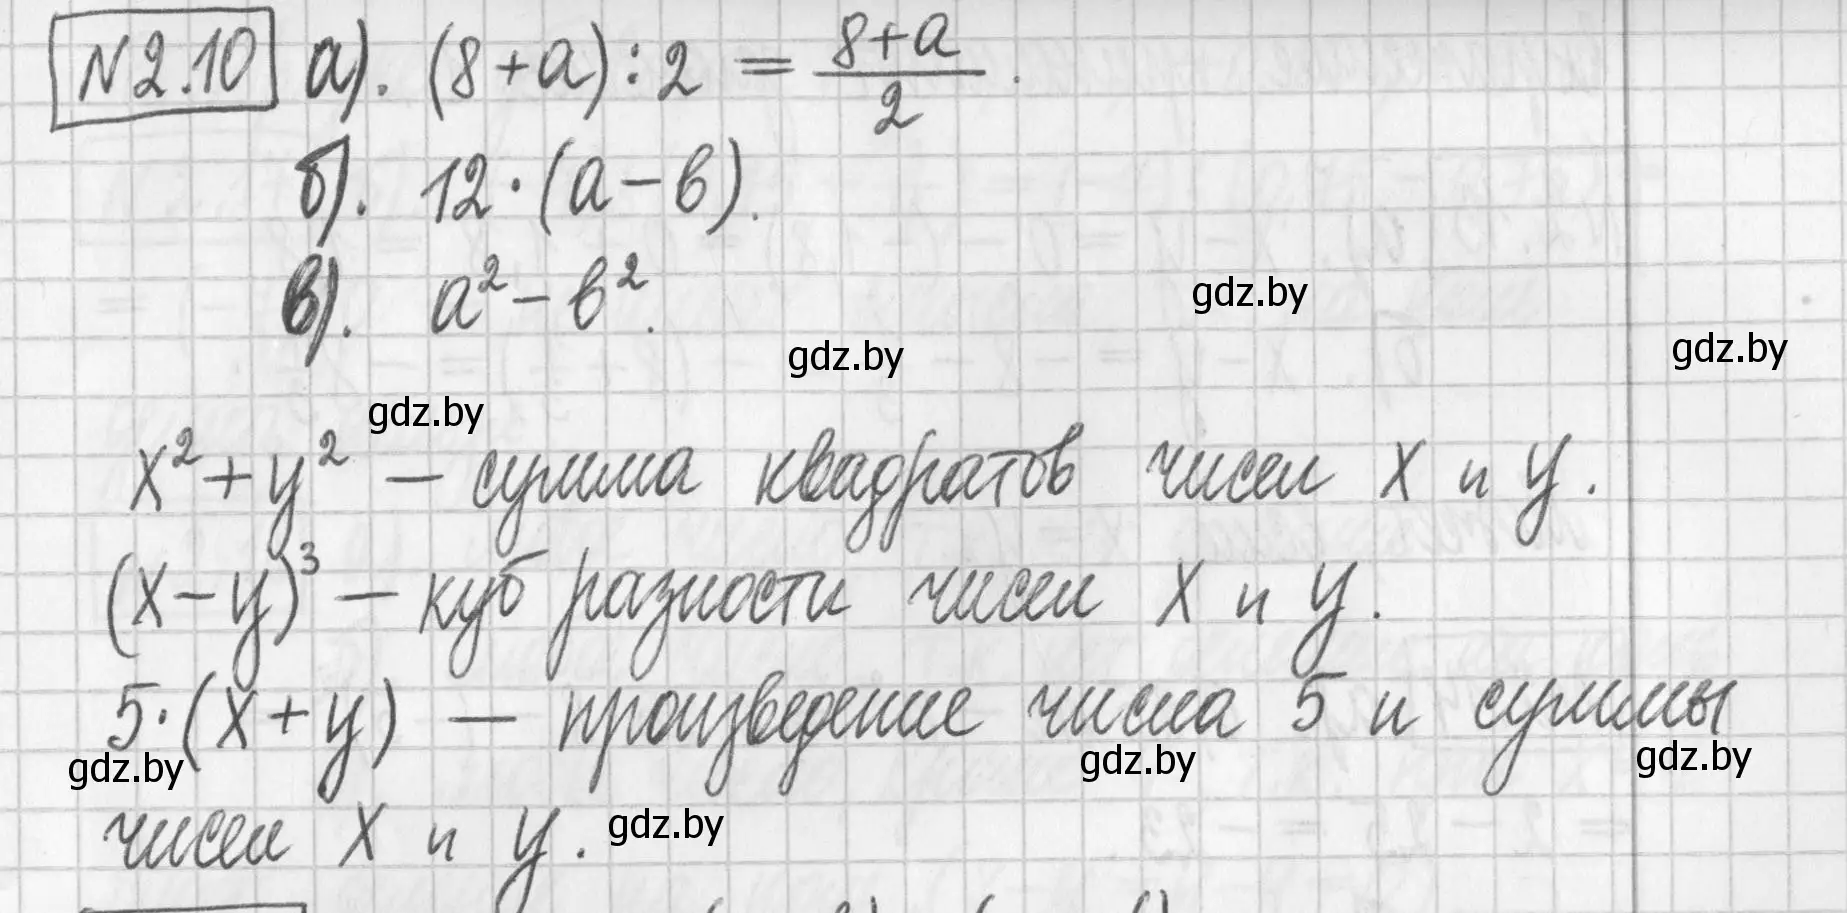 N2.10 а). (8+a):2 = (8+a)/2.
б). 12·(a-b).
в). a²-b².
gdz.by
gdz.by
gdz.by
gdz.by
x²+y² — сумма квадратов чисел x и y.
(x-y)³ — куб разности чисел x и y.
5·(x+y) — произведение числа 5 и суммы
gdz.by
gdz.by
gdz.by
чисел x и y.
gdz.by